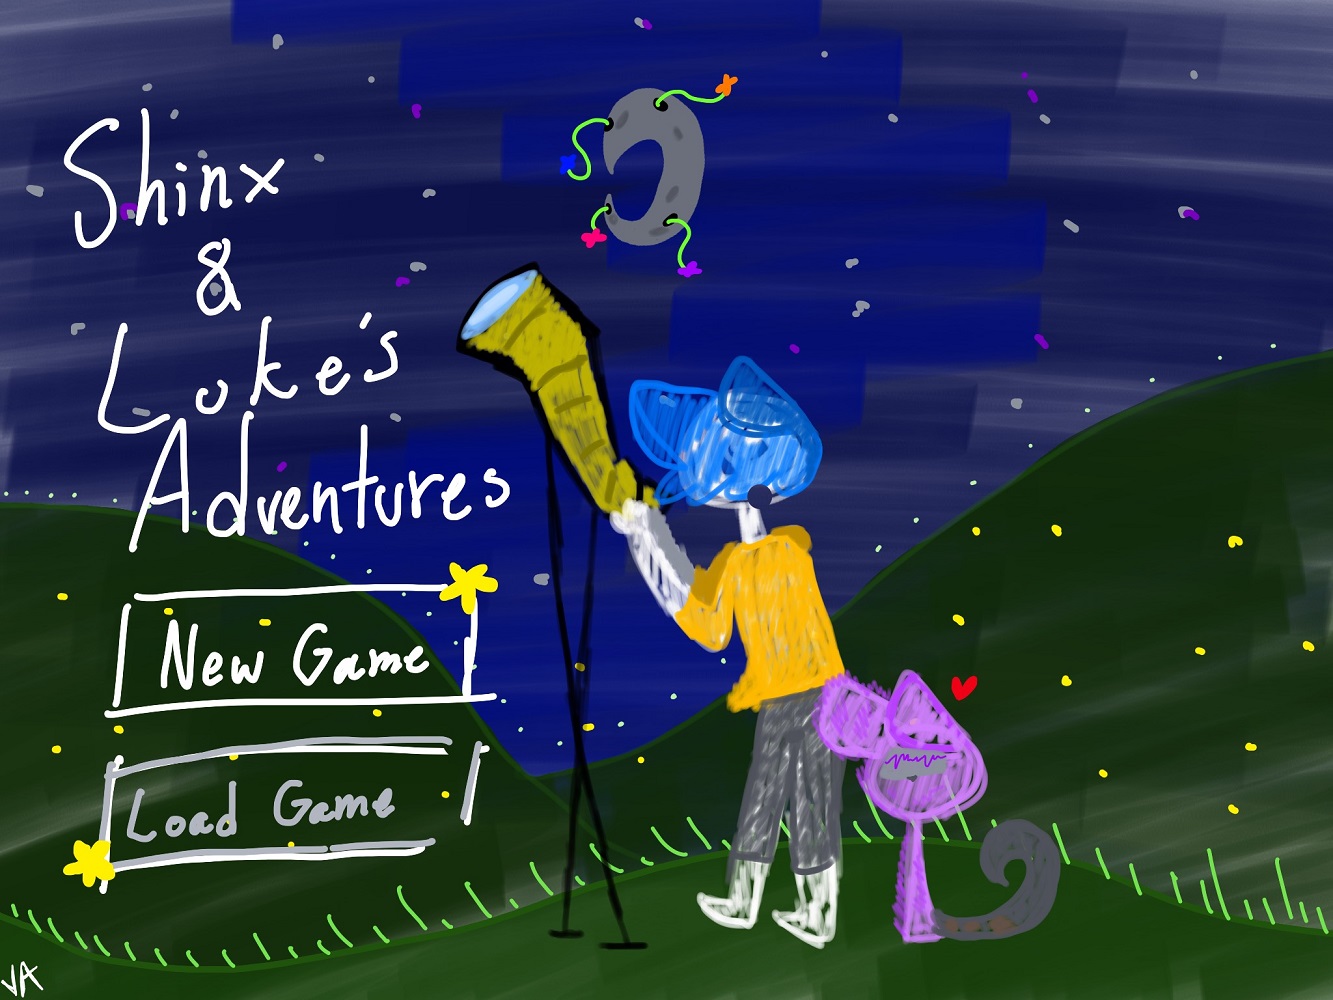 Shinx
&
Luke's
Adventures
New Game
Load Game
JA